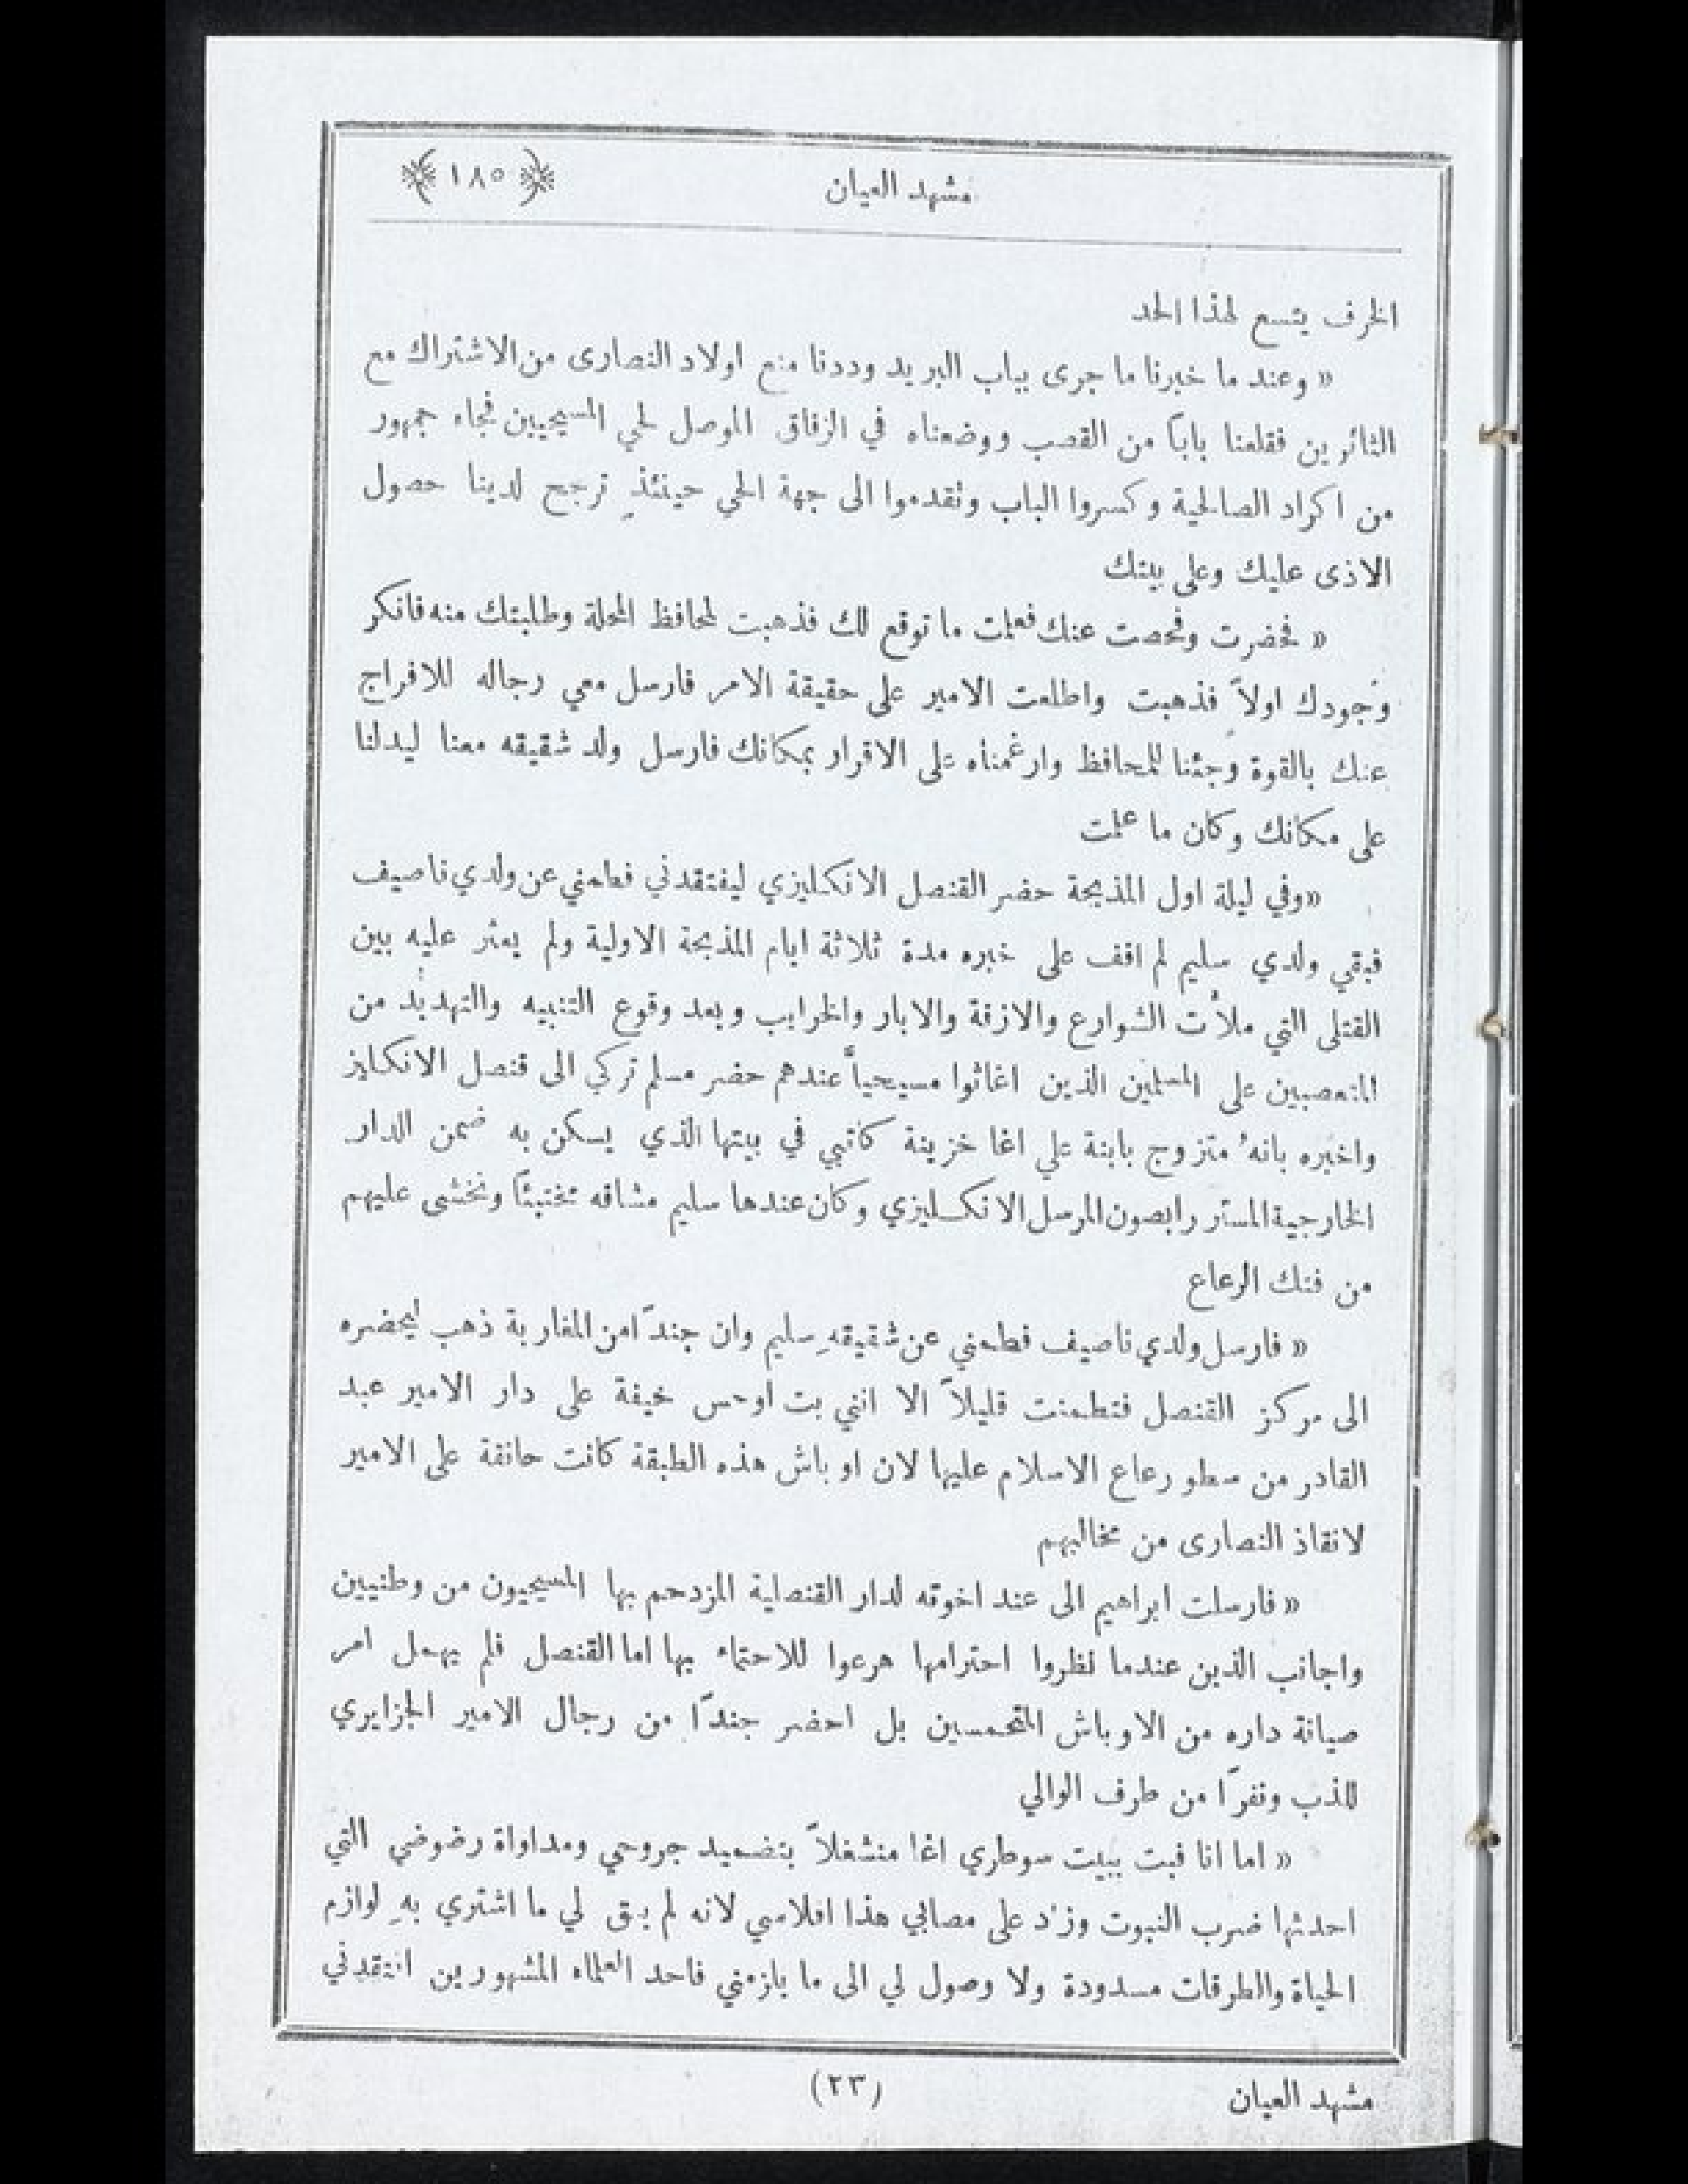 مشهد العيان
﴿١٨٥﴾
الخرف يتسع لهذا الحد
« وعند ما خبرنا ما جرى بباب البريد وددنا منع اولاد النصارى من الاشتراك مع
الثائرين فقلعنا باباً من القصب ووضعناه في الزقاق الموصل لحي المسيحيين فجاء جمهور
من اكراد الصالحية وكسروا الباب وتقدموا الى جهة الحي حينئذٍ ترجح لدينا حصول
الاذى عليك وعلى بيتك
« فحضرت وفحصت عنك فعلمت ما توقع لك فذهبت لمحافظ المحلة وطلبتك منه فانكر
وجودك اولاً فذهبت واطلعت الامير على حقيقة الامر فارسل معي رجاله للافراج
عنك بالقوة وجئنا للمحافظ وارغمناه على الاقرار بمكانك فارسل ولد شقيقه معنا ليدلنا
على مكانك وكان ما علمت
«وفي ليلة اول المذبحة حضر القنصل الانكليزي ليفتقدني فطمني عن ولدي ناصيف
فبقي ولدي سليم لم اقف على خبره مدة ثلاثة ايام المذبحة الاولية ولم يعثر عليه بين
القتلى التي ملأت الشوارع والازقة والابار والخرايب وبعد وقوع التنبيه والتهديد من
المتعصبين على المسلمين الذين اغاثوا مسيحياً عندهم حضر مسلم تركي الى قنصل الانكليز
واخبره بانهُ متزوج بابنة علي اغا خزينة كاتبي في بيتها الذي يسكن به ضمن الدار
الخارجية المستر رابصون المرسل الانكليزي وكان عندها سليم مشاقه مختبئاً ونخشى عليهم
من فتك الرعاع
« فارسل ولدي ناصيف فطمني عن شقيقهِ سليم وان جنداً من المغاربة ذهب ليحضره
الى مركز القنصل فتطمنت قليلاً الا انني بت اوجس خيفة على دار الامير عبد
القادر من سطو رعاع الاسلام عليها لان اوباش هذه الطبقة كانت حانقة على الامير
لانقاذ النصارى من مخالبهم
« فارسلت ابراهيم الى عند اخوته لدار القنصلية المزدحم بها المسيحيون من وطنيين
واجانب الذين عندما نظروا احترامها هرعوا للاحتماء بها اما القنصل فلم يهمل امر
صيانة داره من الاوباش المتحمسين بل احضر جنداً من رجال الامير الجزايري
للذب ونفراً من طرف الوالي
« اما انا فبت ببيت سوطري اغا منشغلاً بتضميد جروحي ومداواة رضوضي التي
احدثها ضرب النبوت وزاد على مصابي هذا افلاسي لانه لم يبق لي ما اشتري بهِ لوازم
الحياة والطرقات مسدودة ولا وصول لي الى ما يلزمني فاحد العلماء المشهورين افتقدني
مشهد العيان
(٢٣)